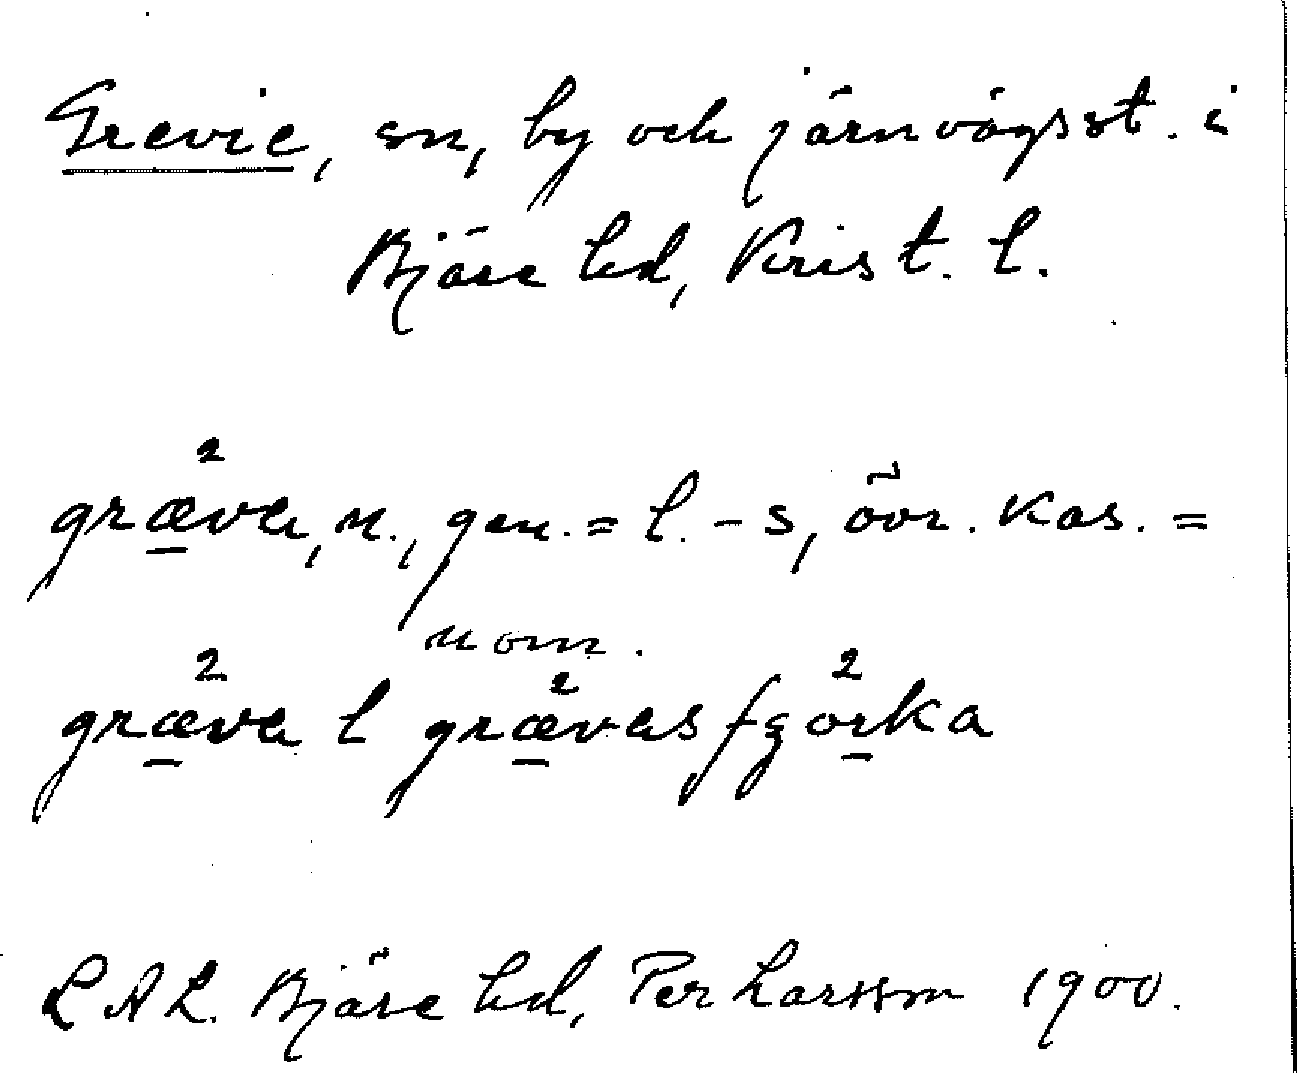 Grevie, sn, by och järnvägsst. i
Bjäre hd, Krist. l.
græ²va, n., gen. = l. -s, övr. kas. =
nom.
græ²va l græ²vas fʒö²rka
LAL. Bjäre hd, Per Larsson 1900.